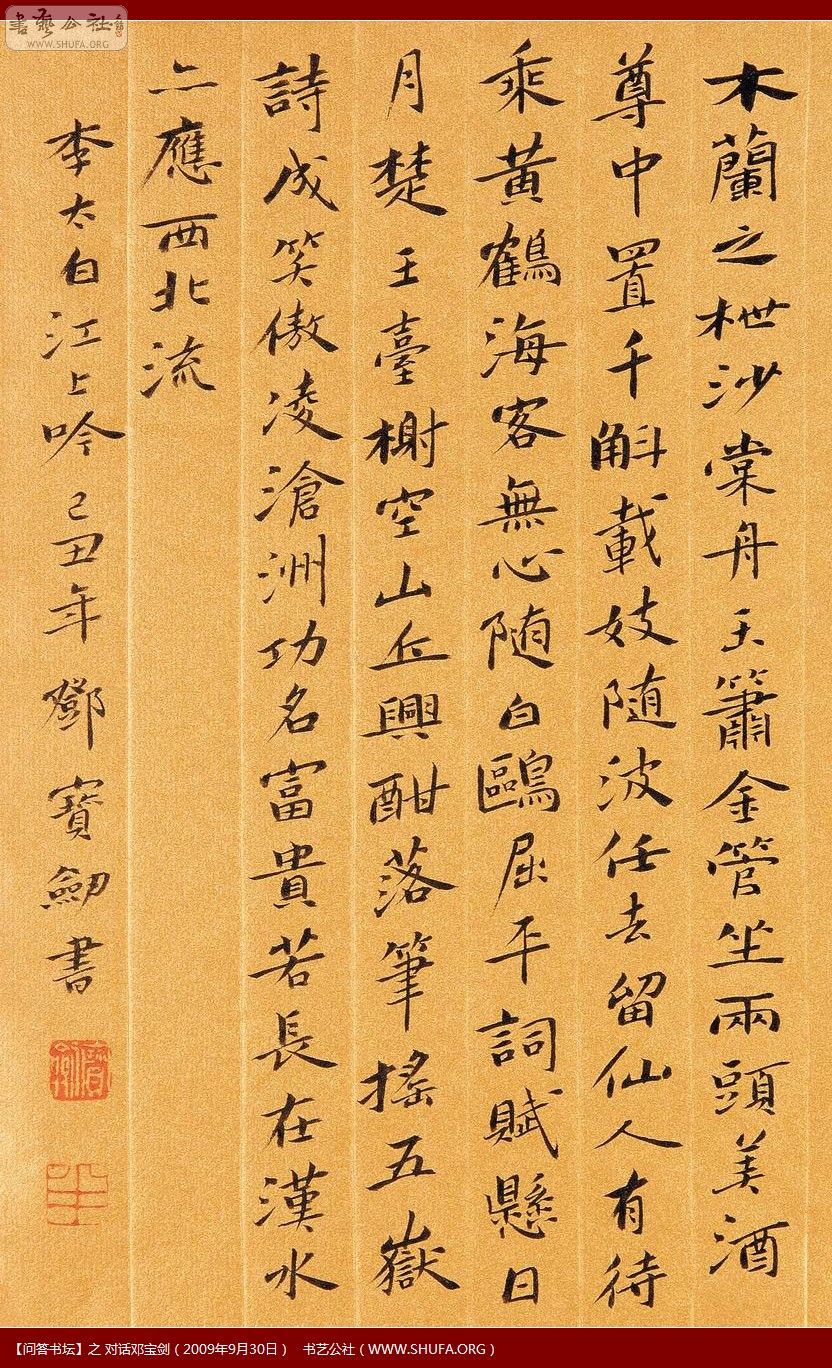 書藝公社
WWW.SHUFA.ORG
木蘭之枻沙棠舟玉簫金管坐兩頭美酒
尊中置千斛載妓随波任去留仙人有待
乘黃鶴海客無心随白鷗屈平詞賦懸日
月楚王臺榭空山丘興酣落筆搖五嶽
詩成笑傲凌滄洲功名富貴若長在漢水
亦應西北流
李太白江上吟己丑年鄧寶劒書
【问答书坛】之 对话邓宝剑（2009年9月30日） 书艺公社（WWW.SHUFA.ORG）